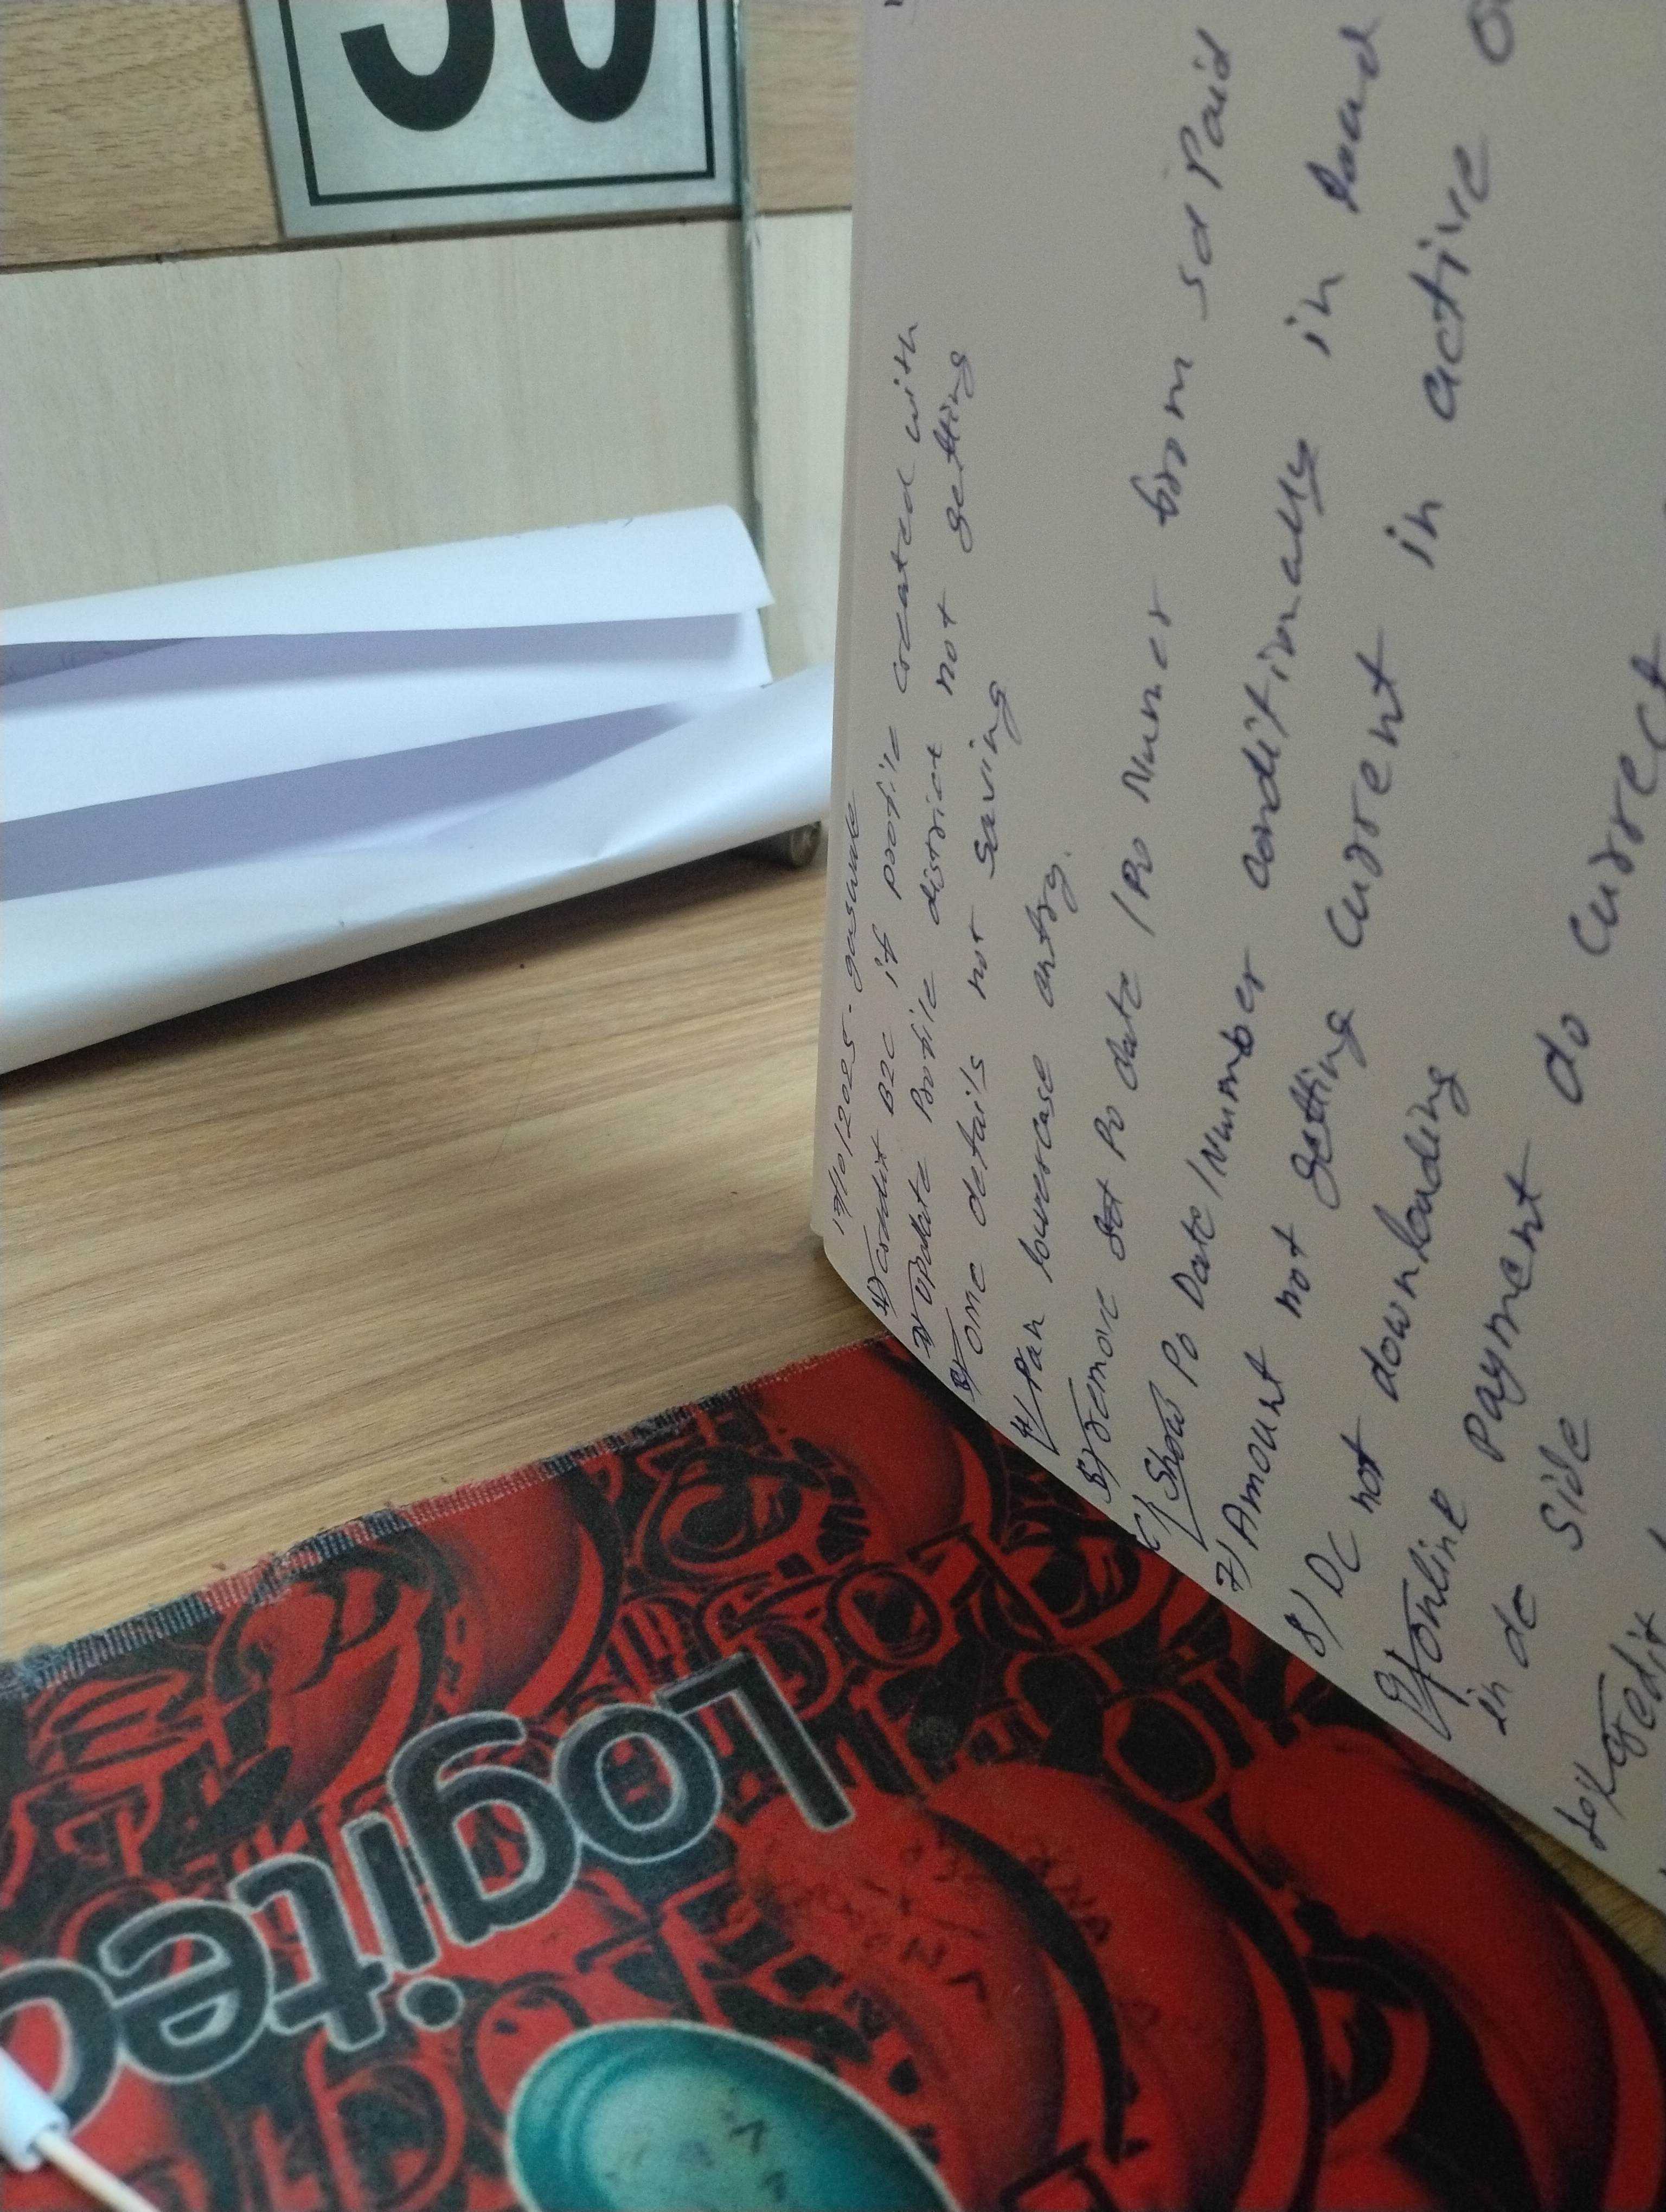 30
17/10/2025 - gasware
1) credit B2C if profile created with
2) Update Profile district not getting
3) OMC details not saving
4) Pan lowercase entry.
5) remove set Po date / Po Numer from sd Paid
6) Show Po Date/Number conditionally in
7) Amount not getting current in active
8) DC not downloading
9) online Payment do currect
in dc side
10) credit
Logitec